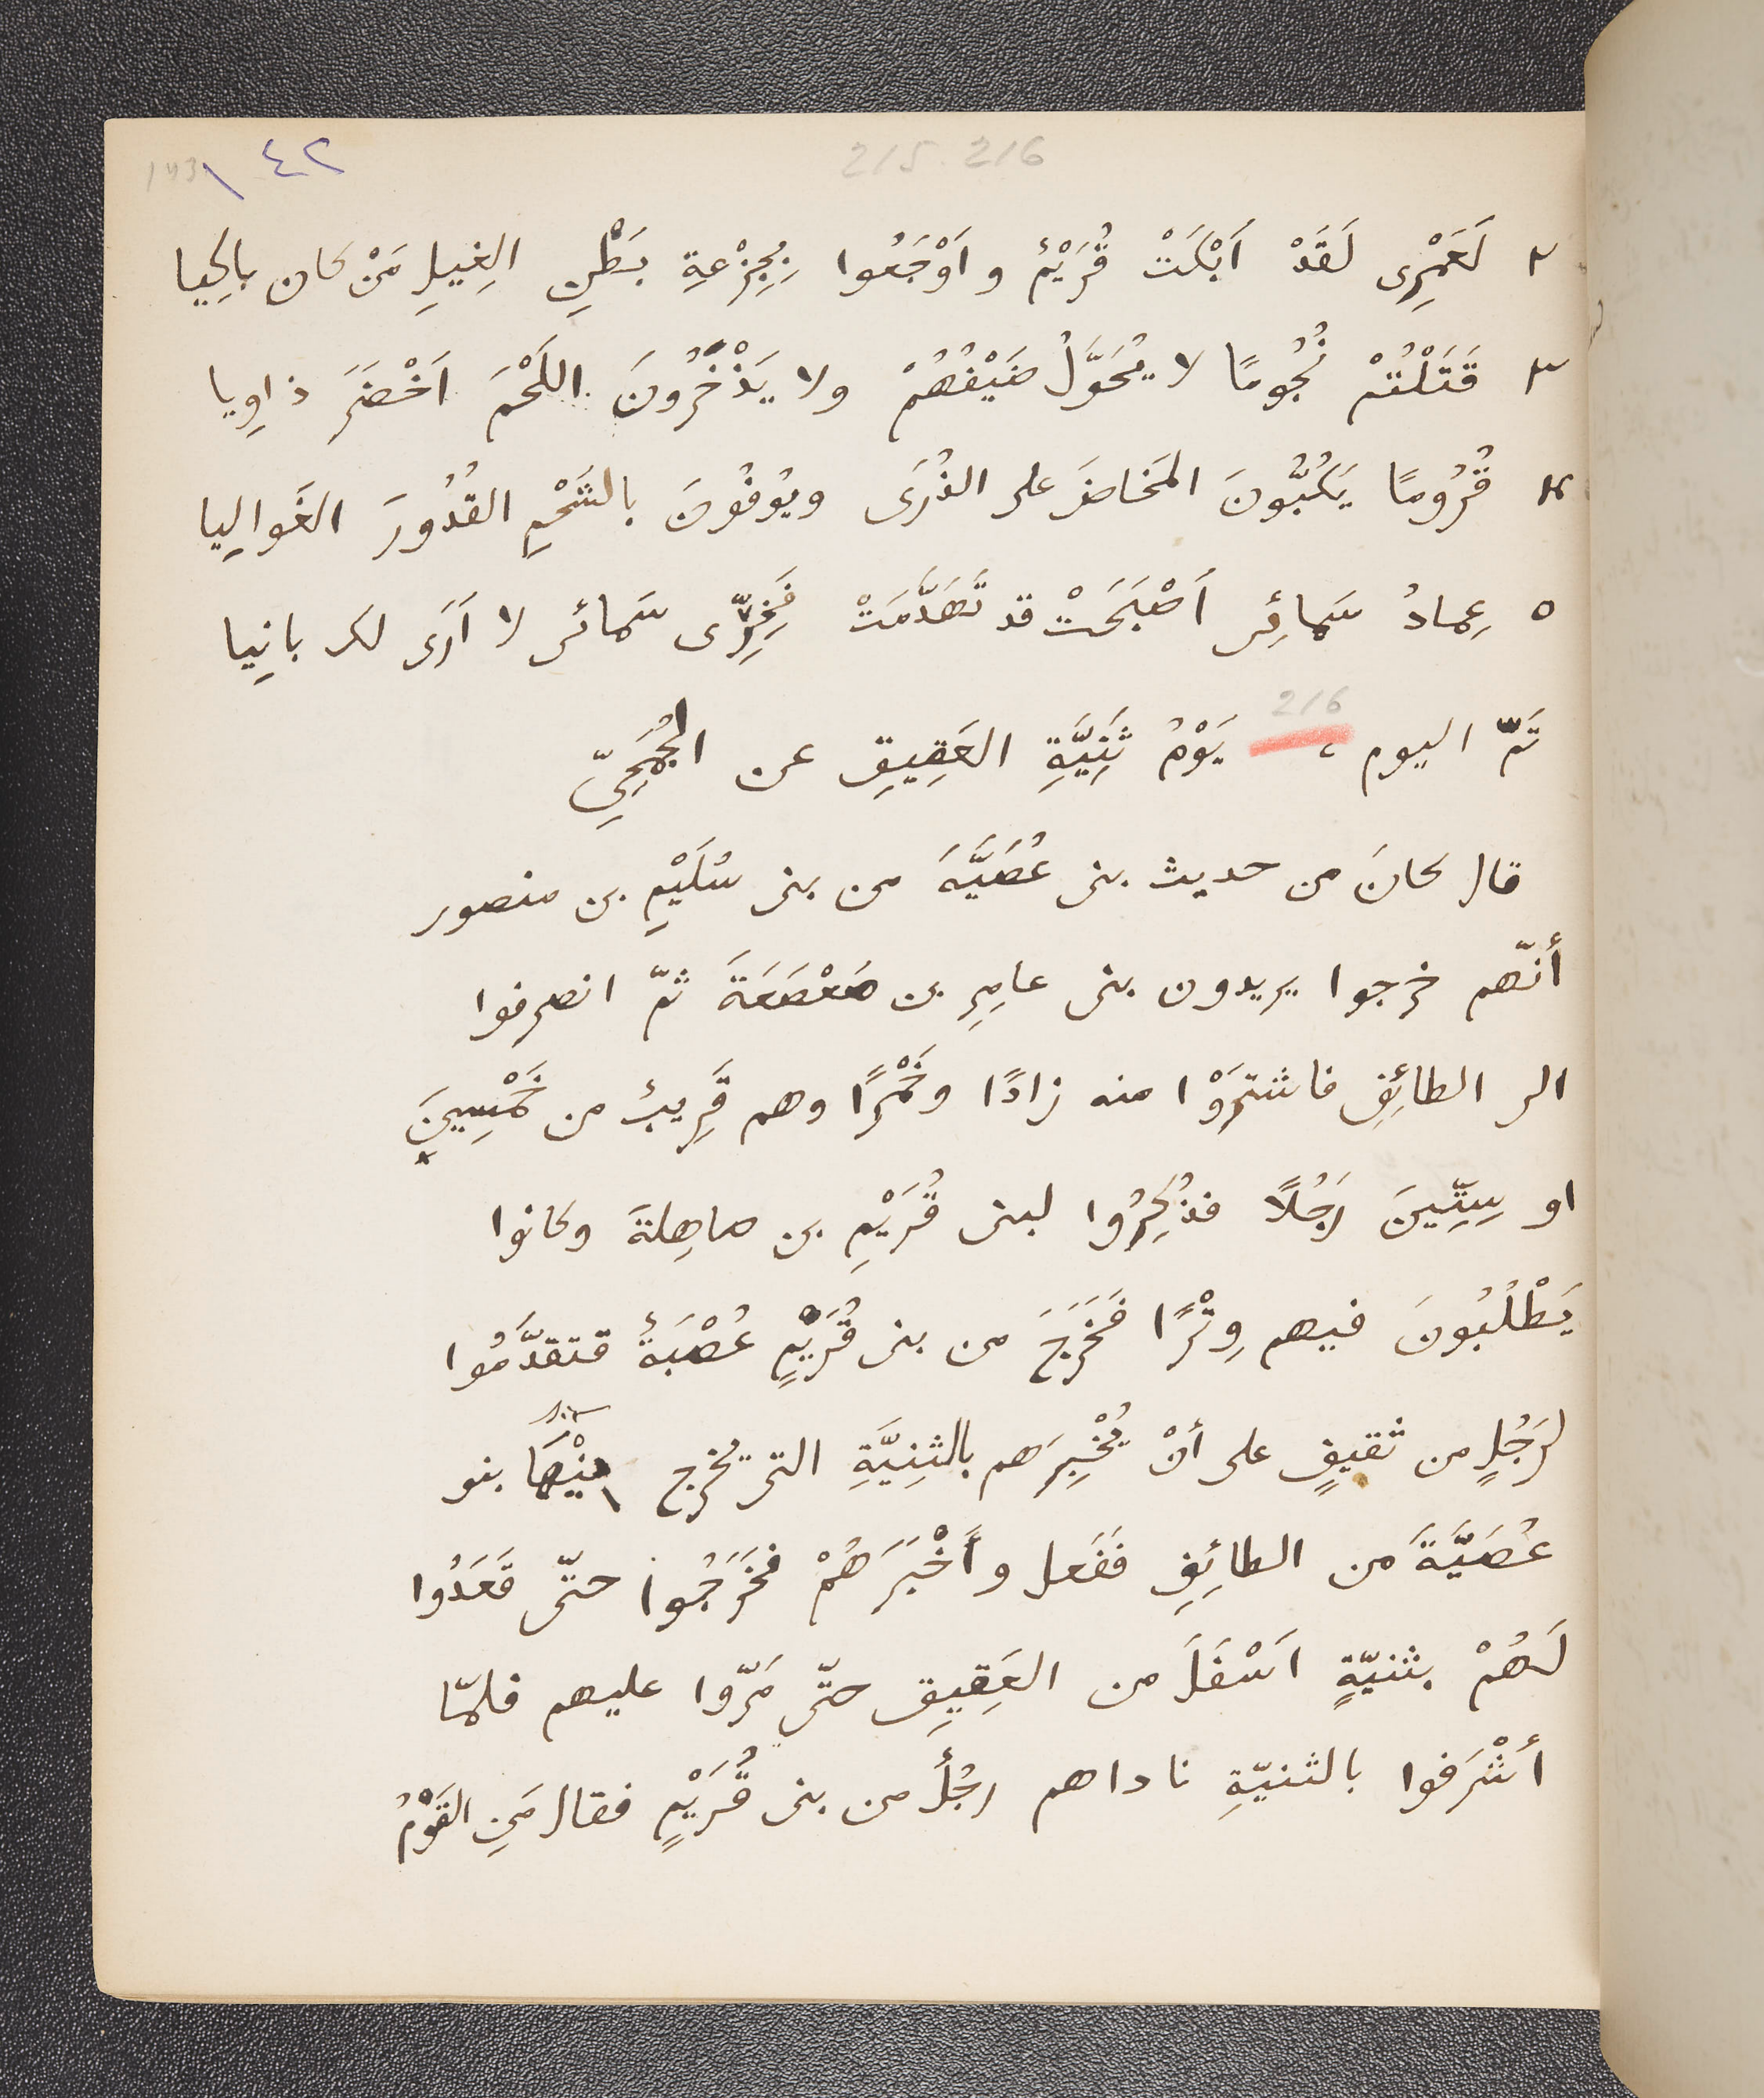 143 \ ٤٢ 2/5. 2/6
٢ لَعَمْرِى لَقَدْ اَبْكَتْ قُرَيْمٌ و اَوْجَعُوا بِجِزْعةِ بَطْنِ الغِيلِ مَنْ كان باكِيا
٣ قَتَلْتُمْ نُجُومًا لا يُحَوَّلُ ضَيْفُهُمْ ولا يَذْخَرُونَ اللَحْمَ اَخْضَرَ ذاوِيا
٤ قُرُومًا يَكُبُّونَ المَخاضَ على الذُرَى ويُوفُونَ بالشَحْمِ القُدُورَ الغَوالِيا
٥ عِمادُ سَمائِى اَصْبَحَتْ قد تَهَدَّمَتْ فَخِرِّى سَمائى لا اَرَى لك بانِيا
2/6
تَمّ اليوم ، يَوْمُ ثَنِيَّةِ العَقِيقِ عن الجُمَحِيّ
قال كانَ من حديث بنى عُصَيَّةَ من بنى سُلَيْمِ بن منصور
أنّهم خرجوا يريدون بنى عامِرِ بن صَعْصَعَةَ ثمّ انصرفوا
الى الطائِفِ فاشتَرَوْا منه زادًا وخَمْرًا وهم قَرِيبٌ من خَمْسِينَ
او سِتِّينَ رَجُلًا فذُكِرُوا لبنى قُرَيْمِ بن صاهِلةَ وكانوا
يَطْلُبُونَ فيهم وِتْرًا فَخَرَجَ من بنى قُرَيْمٍ عُصْبَةٌ فتقدَّمُوا
لرَجُلٍ من ثقيفٍ على أنْ يُخْبِرَهم بالثنِيَّةِ التى يخرج مِنْهَا بنو
عُصَيَّةَ من الطائِفِ ففَعل وأَخْبَرَهُمْ فخَرَجُوا حتّى قَعَدُوا
لَهُمْ بثنيّةٍ اَسْفَلَ من العَقِيقِ حتّى مَرّوا عليهم فلمّا
أشْرَفوا بالثنيّةِ ناداهم رجُلٌ من بنى قُرَيْمٍ فقال مَنِ القَوْمُ